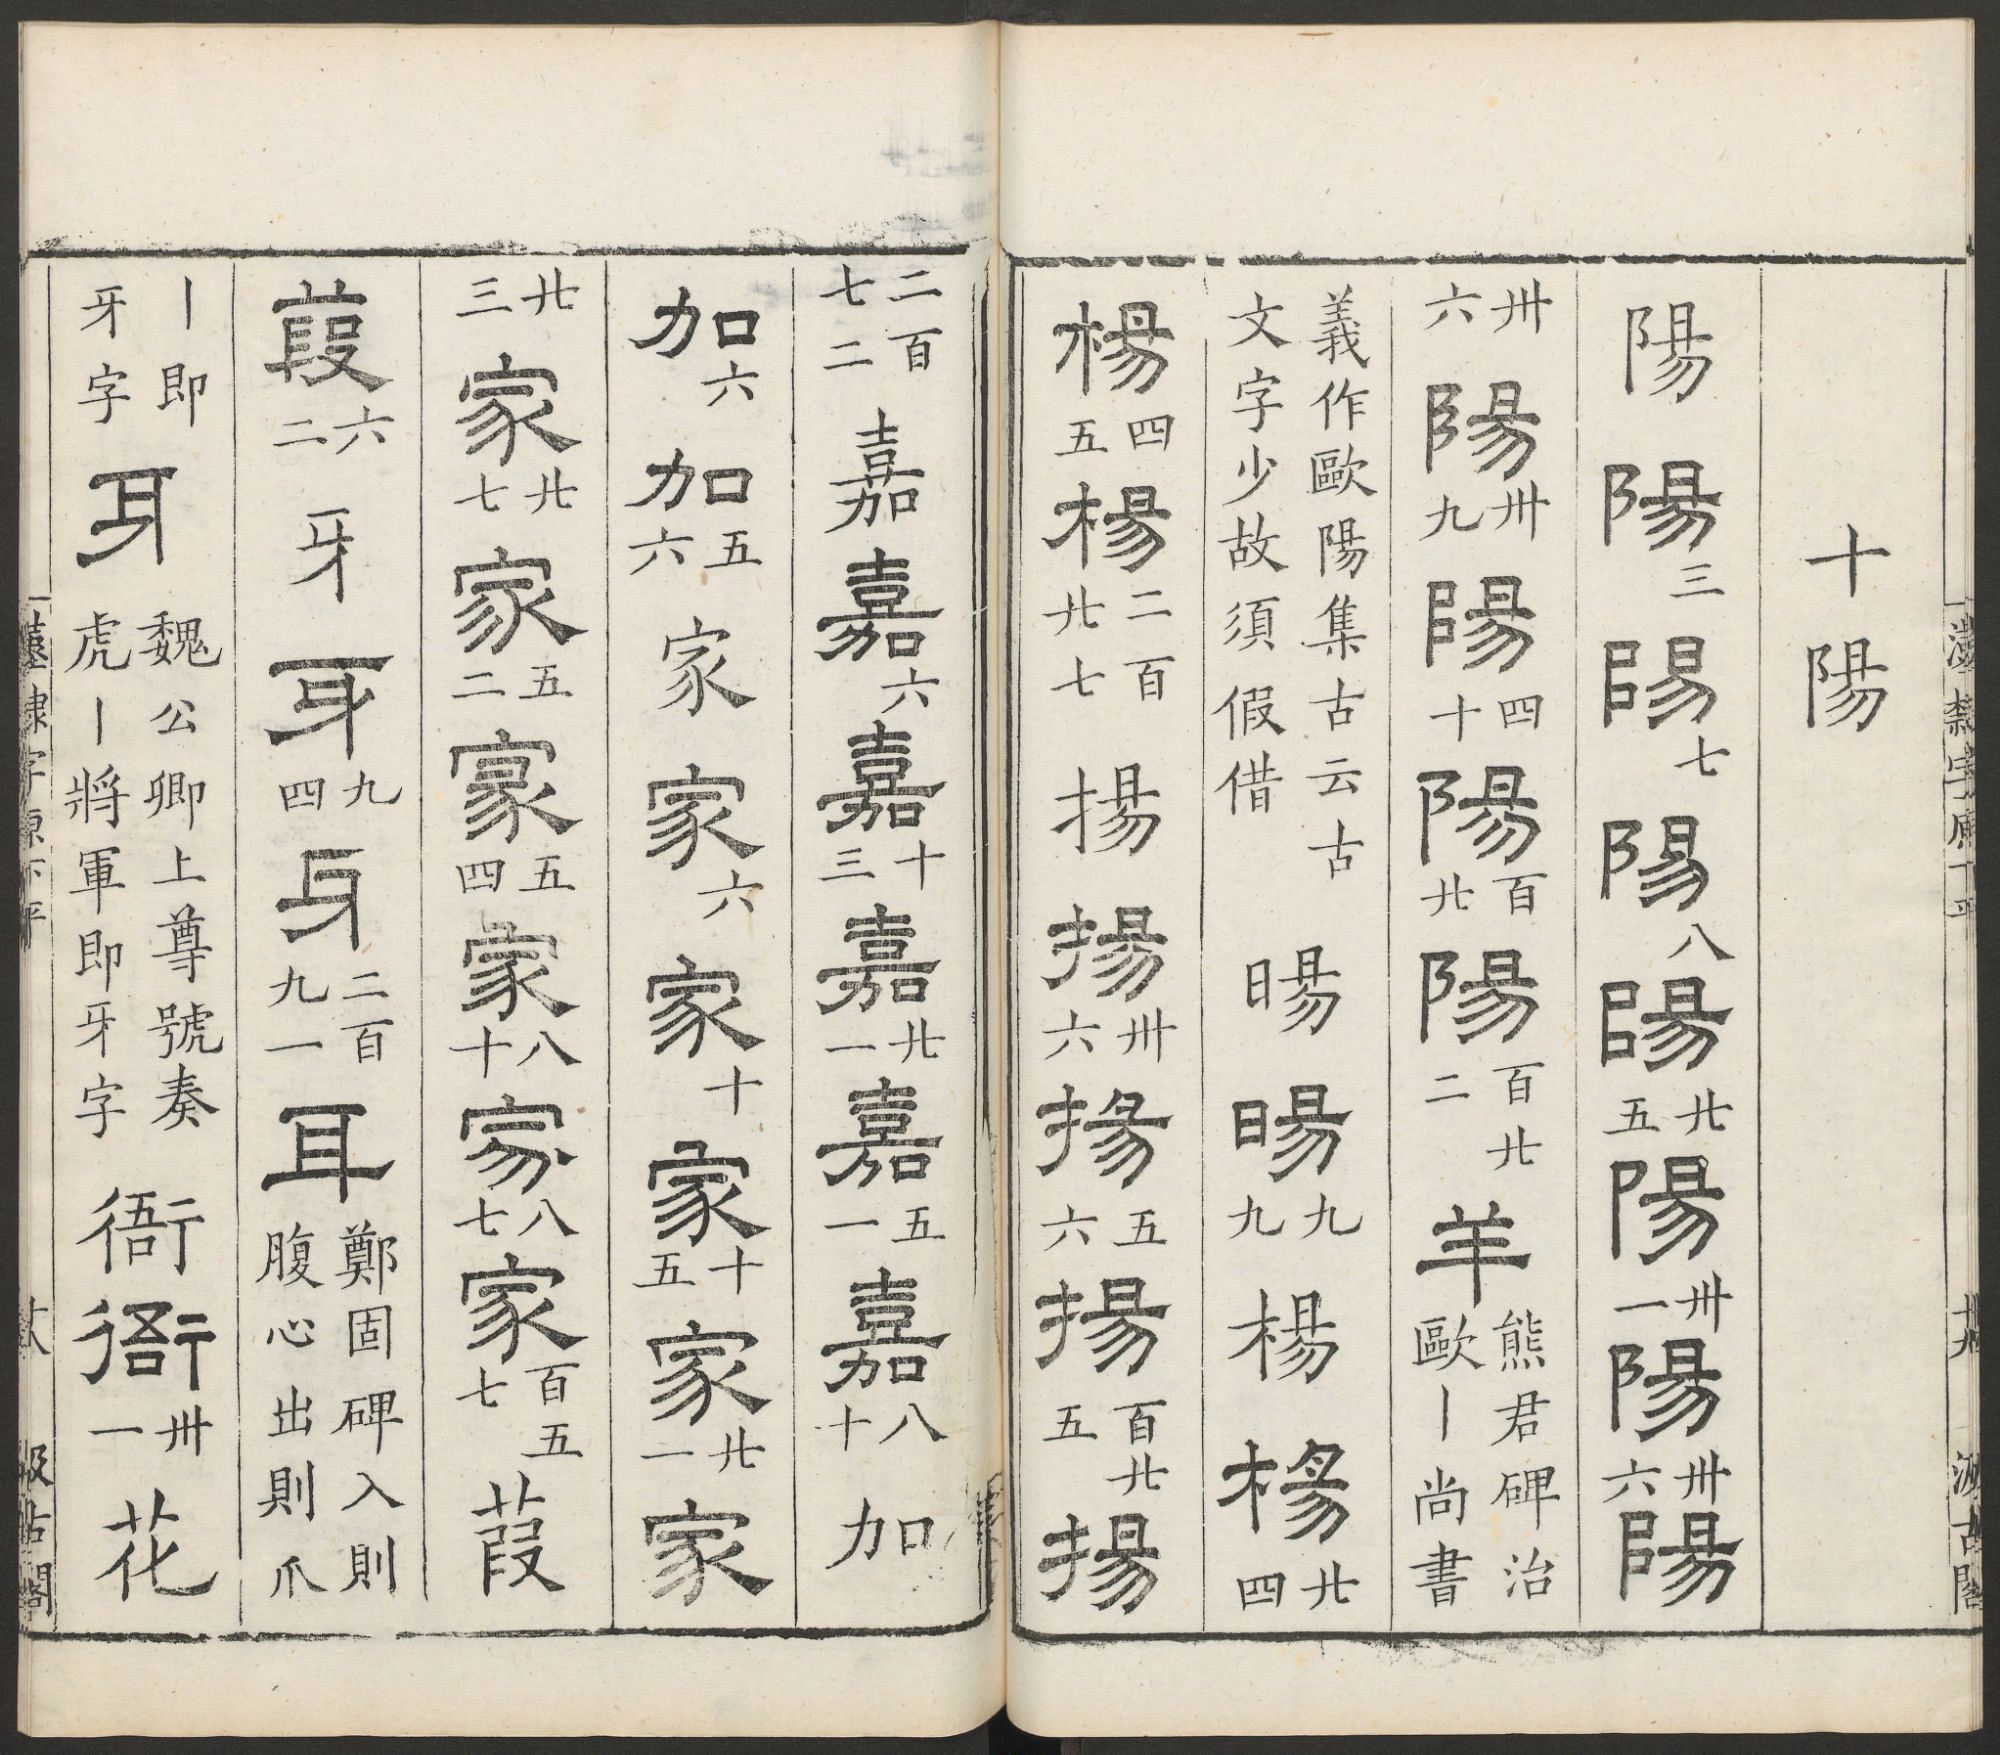 漢隸字原下平 汲古閣
十陽
陽陽三陽七陽八陽廿五陽卅一陽卅六陽
卅六陽卅九陽四十陽百廿陽百廿二羊熊君碑治歐丨尚書
義作歐陽集古云古文字少故須假借暘暘九九楊楊廿四
楊四五楊二百廿七揚揚卅六揚五六揚百廿五揚
二百七二嘉嘉六嘉十三嘉廿一嘉五一嘉八十加
加六加五六家家六家十家十五家廿一家
廿三家廿七家五二家五四家八十家八七家百五七葭
葭六二牙牙九四牙二百九一耳鄭固碑入則腹心出則爪
丨即牙字牙魏公卿上尊號奏虎丨將軍即牙字衙衙卅一花
隸字原下平 汲古閣